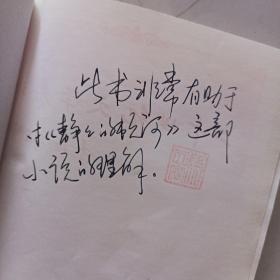 此书非常有助于
对《静静的顿河》这部
小说的理解.